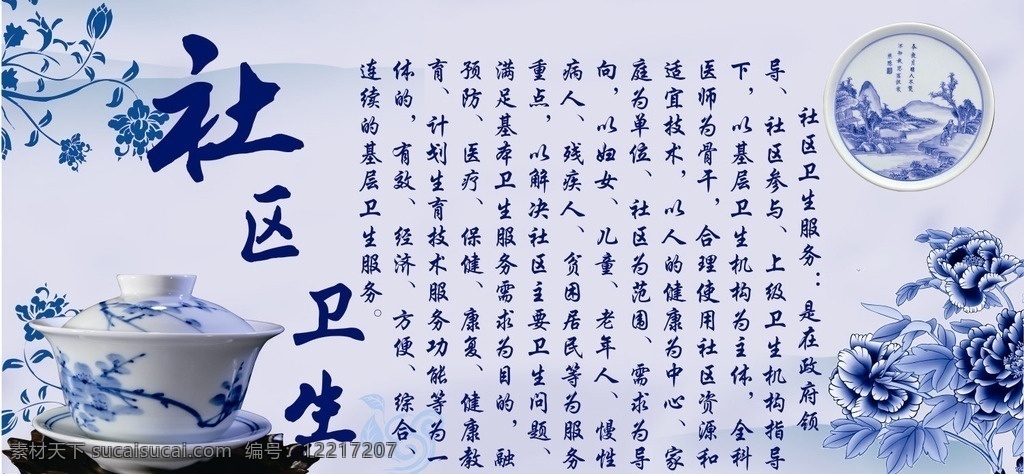 社区卫生
社区卫生服务：是在政府领
导、社区参与、上级卫生机构指导
下，以基层卫生机构为主体，全科
医师为骨干，合理使用社区资源和
适宜技术，以人的健康为中心、家
庭为单位、社区为范围、需求为导
向，以妇女、儿童、老年人、慢性
病人、残疾人、贫困居民等为服务
重点，以解决社区主要卫生问题、
满足基本卫生服务需求为目的，融
预防、医疗、保健、康复、健康教
育、计划生育技术服务功能等为一
体的，有效、经济、方便、综合、
连续的基层卫生服务。
素材天下 sucaisucai.com 编号：12217207